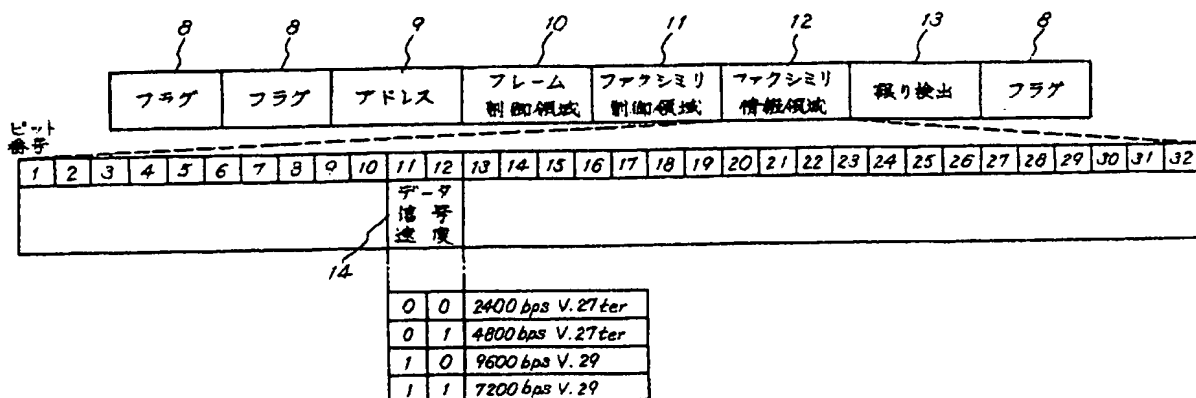 8 8 9 10 11 12 13 8
フラグ フラグ アドレス フレーム制御領域 ファクシミリ制御領域 ファクシミリ情報領域 誤り検出 フラグ
ビット番号
1 2 3 4 5 6 7 8 9 10 11 12 13 14 15 16 17 18 19 20 21 22 23 24 25 26 27 28 29 30 31 32
データ
信号
速度
14
0 0 2400 bps V.27ter
0 1 4800 bps V.27ter
1 0 9600 bps V.29
1 1 7200 bps V.29